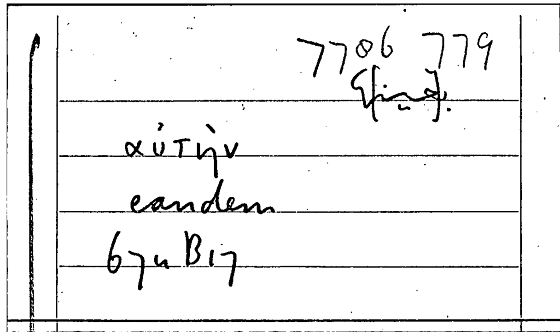 7706 779
αὐτὴν
eandem
67a B17